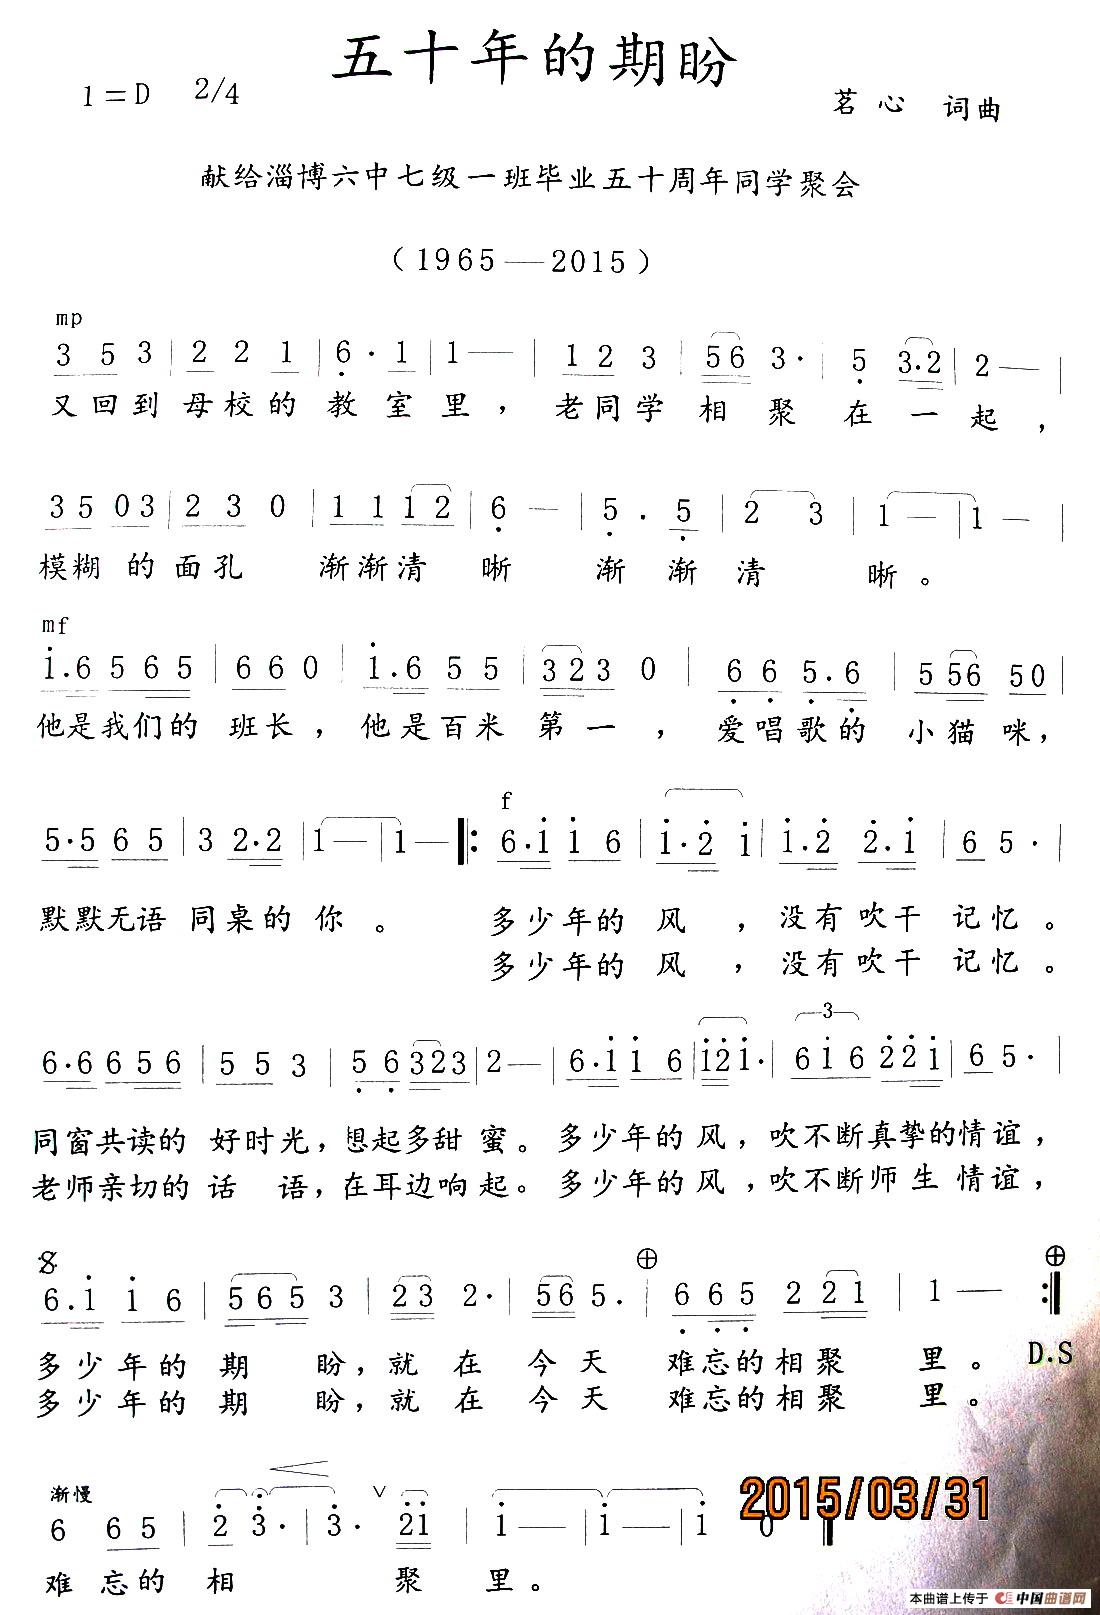 五十年的期盼
1=D 2/4
茗心 词曲
献给淄博六中七级一班毕业五十周年同学聚会
（1965——2015）
mp
3 5 3 | 2 2 1 | 6· 1 | 1 — | 1 2 3 | 56 3· | 5 3·2 | 2 — |
又回到 母校的 教室里，老同学 相聚在一起，
35 03 | 2 3 0 | 1 1 12 | 6 — | 5 · 5 | 2 3 | 1 — | 1 — |
模糊的面孔 渐渐清晰 渐渐清晰。
mf
1·6 565 | 6 6 0 | 1·6 5 5 | 323 0 | 6 6 5·6 | 556 50 |
他是我们的班长，他是百米第一，爱唱歌的小猫咪，
5·5 65 | 3 2·2 | 1 — | 1 — |: f 6·1 1 6 | 1·2 1 | 1·2 2·1 | 6 5· |
默默无语同桌的你。 多少年的风，没有吹干记忆。
多少年的风，没有吹干记忆。
6·6 656 | 5 5 3 | 56 323 | 2 — | 6·1 1 6 | 12 1· | 3 616 221 | 6 5· |
同窗共读的 好时光，想起多甜蜜。多少年的风，吹不断真挚的情谊，
老师亲切的话语，在耳边响起。多少年的风，吹不断师生情谊，
6·1 1 6 | 565 3 | 23 2· | 56 5· | 665 221 | 1 — :|
多少年的期盼，就在今天 难忘的相聚里。 D.S
多少年的期盼，就在今天 难忘的相聚里。
渐慢
6 65 | 2 3· | 3· 21 | 1 — | 1 — | 1 0 |
难忘的相聚里。
2015/03/31
本曲谱上传于 中国曲谱网